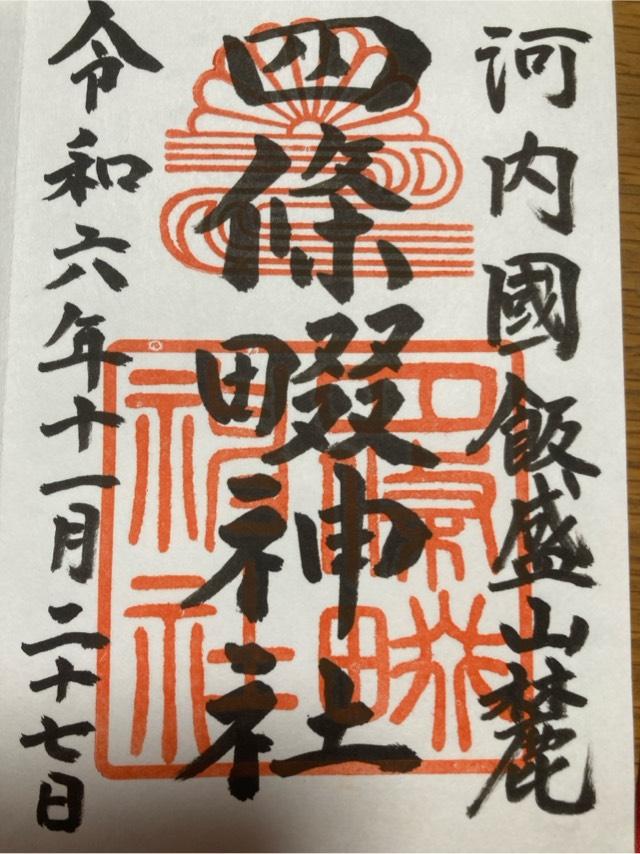 河内國飯盛山麓
四條畷神社
令和六年十一月二十七日
四條畷神社